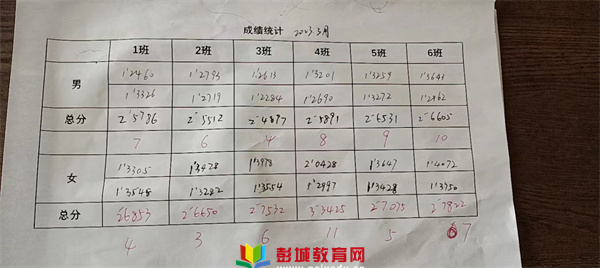 成绩统计 2023 3月
1班 2班 3班 4班 5班 6班
男 1'2460 1'2793 1'2613 1'3201 1'3259 1'3643
1'3326 1'2719 1'2284 1'2690 1'3272 1'2962
总分 2'5786 2'5512 2'4897 2'5891 2'6531 2'6605
7 6 4 8 9 10
女 1'3305 1'3428 1'3978 2'0428 1'3647 1'4072
1'3548 1'3282 1'3554 1'2997 1'3428 1'3750
总分 2'6853 2'6650 2'7532 3'3425 2'7075 2'7822
4 3 6 11 5 7
彭城教育网